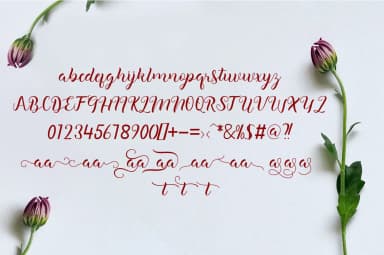 abcdefghijklmnopqrstuvwxyz
ABCDEFGHIJKLMNOPQRSTUVWXYZ
0123456789()[]+-=><^*&%$#@?!
aa aa aa aa aa aa
t t t